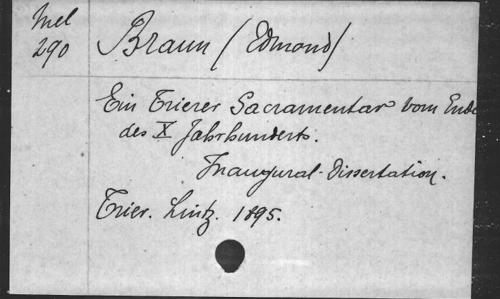 Mel
290
Braun (Edmond)
Ein Trierer Sacramentar vom Ende
des X Jahrhunderts.
Inaugural-Dissertation.
Trier. Lintz. 1895.